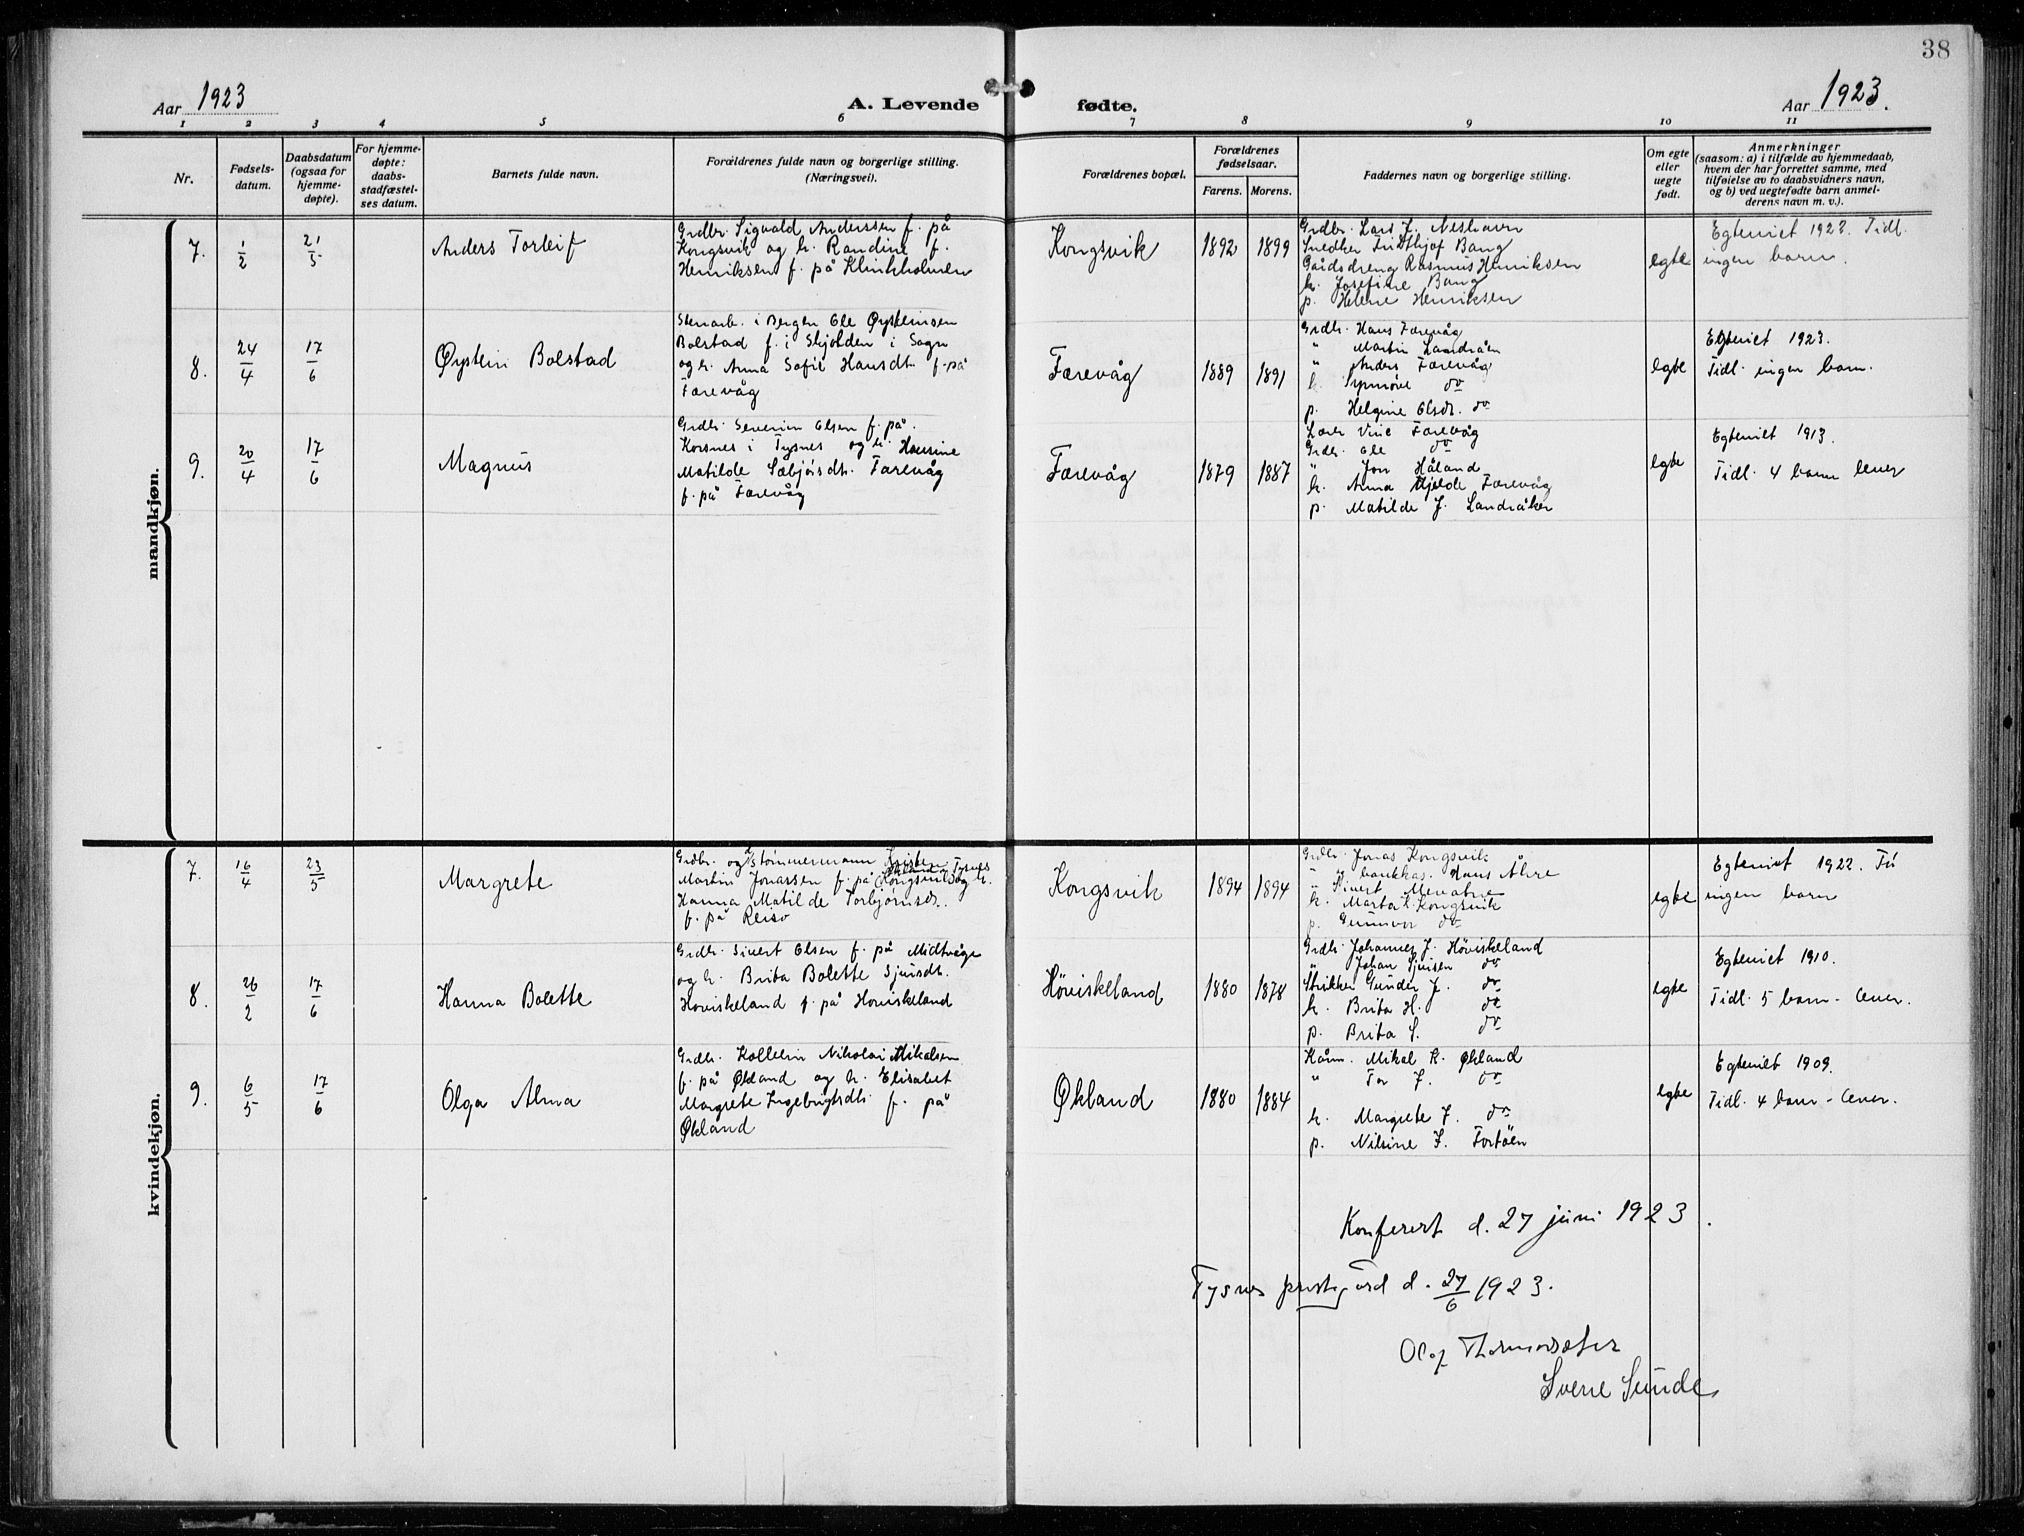 38
Aar 1923
A. Levende fødte.
Aar 1923.
1 2 3 4 5 6 7 8 9 10 11
Nr.
Fødsels-
datum.
Daabsdatum
(ogsaa for
hjemme-
døpte).
For hjemme-
døpte:
daabs-
stadfæstel-
ses datum.
Barnets fulde navn.
Forældrenes fulde navn og borgerlige stilling.
(Næringsvei).
Forældrenes bopæl.
Forældrenes
fødselsaar.
Farens. Morens.
Faddernes navn og borgerlige stilling.
Om egte
eller
uegte
født.
Anmerkninger
(saasom: a) i tilfælde av hjemmedaab,
hvem der har forrettet samme, med
tilføielse av to daabsvidners navn,
og b) ved uegtefødte barn anmel-
derens navn m. v.).
mandkjøn.
7. 1/2 21/5
Anders Torleif
Grdbr. Sigvald Anderssen f. på
Kongsvik og h. Randine f.
Henriksen f. på Klinkholmen
Kongsvik 1892 1899
Grdbr. Lars J. Neshavn
Snedker Fridthjof Bang
Gårdsdreng Rasmus Henriksen
k. Josefine Bang
p. Helene Henriksen
egte
Egteviet 1923. Tidl.
ingen barn.
8. 24/4 17/6
Øystein Bolstad
Stenarb. i Bergen Ole Øysteinsen
Bolstad f. i Skjolden i Sogn
og h. Anna Sofie Hansdt. f. på
Færevåg
Færevåg 1889 1891
Grdbr. Hans Færevåg
" Martin Landråen
" Anders Færevåg
k. Synnøve do
p. Helgine Olsdt. do
egte
Egteviet 1923.
Tidl. ingen barn.
9. 20/4 17/6
Magnus
Grdbr. Severin Olsen f. på
Korsnes i Tysnes og h. Hansine
Matilde Sæbjørsdt. Færevåg
f. på Færevåg
Færevåg 1879 1887
Lærer Vine Færevåg
Grdbr. Ole do
" Jon Håland
k. Anna Gjelde Færevåg
p. Matilde J. Landråker
egte
Egteviet 1913.
Tidl. 4 barn lever
kvindekjøn.
7. 16/4 23/5
Margrete
Grdbr. og tømmermann Kristen
Martin Jonassen f. på Økland, Tysnes og h.
Hanna Matilde Torbjørnsdt.
f. på Reiso
Kongsvik 1894 1894
Grdbr. Jonas Kongsvik
" bankkas. Hans Åhre
" Sivert
k. Marta Kongsvik
p. Gunnvor do
egte
Egteviet 1922.
ingen barn
8. 26/2 17/6
Hanna Bolette
Grdbr. Sivert Olsen f. på Midtvåge
og h. Brita Bolette Sjursdt.
Høviskeland f. på Høviskeland
Høviskeland 1880 1878
Grdbr. Johannes J. Høviskeland
" Johan Sjursen do
Strikker Gunder J. do
k. Brita H. do
p. Brita S. do
egte
Egteviet 1910.
Tidl. 5 barn - lever.
9. 6/5 17/6
Olga Alma
Grdbr. Kolbein Nikolai Mikalsen
f. på Økland og h. Elisabet
Margrete Ingebrigtsdt. f. på
Økland
Økland 1880 1884
Kårm. Mikal K. Økland
" Tor J. do
k. Margrete J. do
p. Nilsine J. Fortøen
egte
Egteviet 1909.
Tidl. 4 barn - lever.
Konferert d. 27 juni 1923.
Tysnes prestegård d. 27/6 1923.
Olaf Thormodsæter
Sverre Sunde